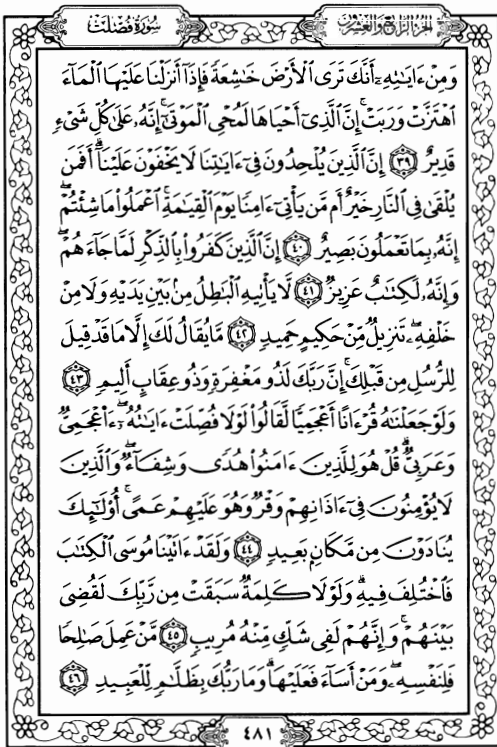 سورة فصلت
الجزء الرابع والعشرون
وَمِنْ ءَايَٰتِهِۦٓ أَنَّكَ تَرَى ٱلْأَرْضَ خَٰشِعَةً فَإِذَآ أَنزَلْنَا عَلَيْهَا ٱلْمَآءَ
ٱهْتَزَّتْ وَرَبَتْ ۚ إِنَّ ٱلَّذِىٓ أَحْيَاهَا لَمُحْىِ ٱلْمَوْتَىٰٓ ۚ إِنَّهُۥ عَلَىٰ كُلِّ شَىْءٍ
قَدِيرٌ ٣٩ إِنَّ ٱلَّذِينَ يُلْحِدُونَ فِىٓ ءَايَٰتِنَا لَا يَخْفَوْنَ عَلَيْنَآ ۗ أَفَمَن
يُلْقَىٰ فِى ٱلنَّارِ خَيْرٌ أَم مَّن يَأْتِىٓ ءَامِنًا يَوْمَ ٱلْقِيَٰمَةِ ۚ ٱعْمَلُوا۟ مَا شِئْتُمْ ۖ
إِنَّهُۥ بِمَا تَعْمَلُونَ بَصِيرٌ ٤٠ إِنَّ ٱلَّذِينَ كَفَرُوا۟ بِٱلذِّكْرِ لَمَّا جَآءَهُمْ ۖ
وَإِنَّهُۥ لَكِتَٰبٌ عَزِيزٌ ٤١ لَّا يَأْتِيهِ ٱلْبَٰطِلُ مِنۢ بَيْنِ يَدَيْهِ وَلَا مِنْ
خَلْفِهِۦ ۖ تَنزِيلٌ مِّنْ حَكِيمٍ حَمِيدٍ ٤٢ مَّا يُقَالُ لَكَ إِلَّا مَا قَدْ قِيلَ
لِلرُّسُلِ مِن قَبْلِكَ ۚ إِنَّ رَبَّكَ لَذُو مَغْفِرَةٍ وَذُو عِقَابٍ أَلِيمٍ ٤٣
وَلَوْ جَعَلْنَٰهُ قُرْءَانًا أَعْجَمِيًّا لَّقَالُوا۟ لَوْلَا فُصِّلَتْ ءَايَٰتُهُۥٓ ۖ ءَا۬عْجَمِىٌّ
وَعَرَبِىٌّ ۗ قُلْ هُوَ لِلَّذِينَ ءَامَنُوا۟ هُدًى وَشِفَآءٌ ۖ وَٱلَّذِينَ
لَا يُؤْمِنُونَ فِىٓ ءَاذَانِهِمْ وَقْرٌ وَهُوَ عَلَيْهِمْ عَمًى ۚ أُو۟لَٰٓئِكَ
يُنَادَوْنَ مِن مَّكَانٍۭ بَعِيدٍ ٤٤ وَلَقَدْ ءَاتَيْنَا مُوسَى ٱلْكِتَٰبَ
فَٱخْتُلِفَ فِيهِ ۗ وَلَوْلَا كَلِمَةٌ سَبَقَتْ مِن رَّبِّكَ لَقُضِىَ
بَيْنَهُمْ ۚ وَإِنَّهُمْ لَفِى شَكٍّ مِّنْهُ مُرِيبٍ ٤٥ مَّنْ عَمِلَ صَٰلِحًا
فَلِنَفْسِهِۦ ۖ وَمَنْ أَسَآءَ فَعَلَيْهَا ۗ وَمَا رَبُّكَ بِظَلَّٰمٍ لِّلْعَبِيدِ ٤٦
٤٨١